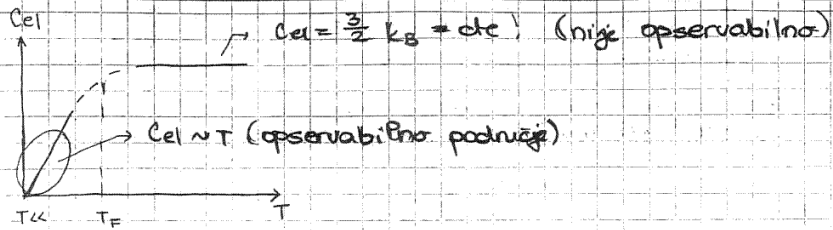 Cel
Cel = 3/2 kB = cte! (nije opservabilno)
Cel ~ T (opservabilno područje)
T<< TF T